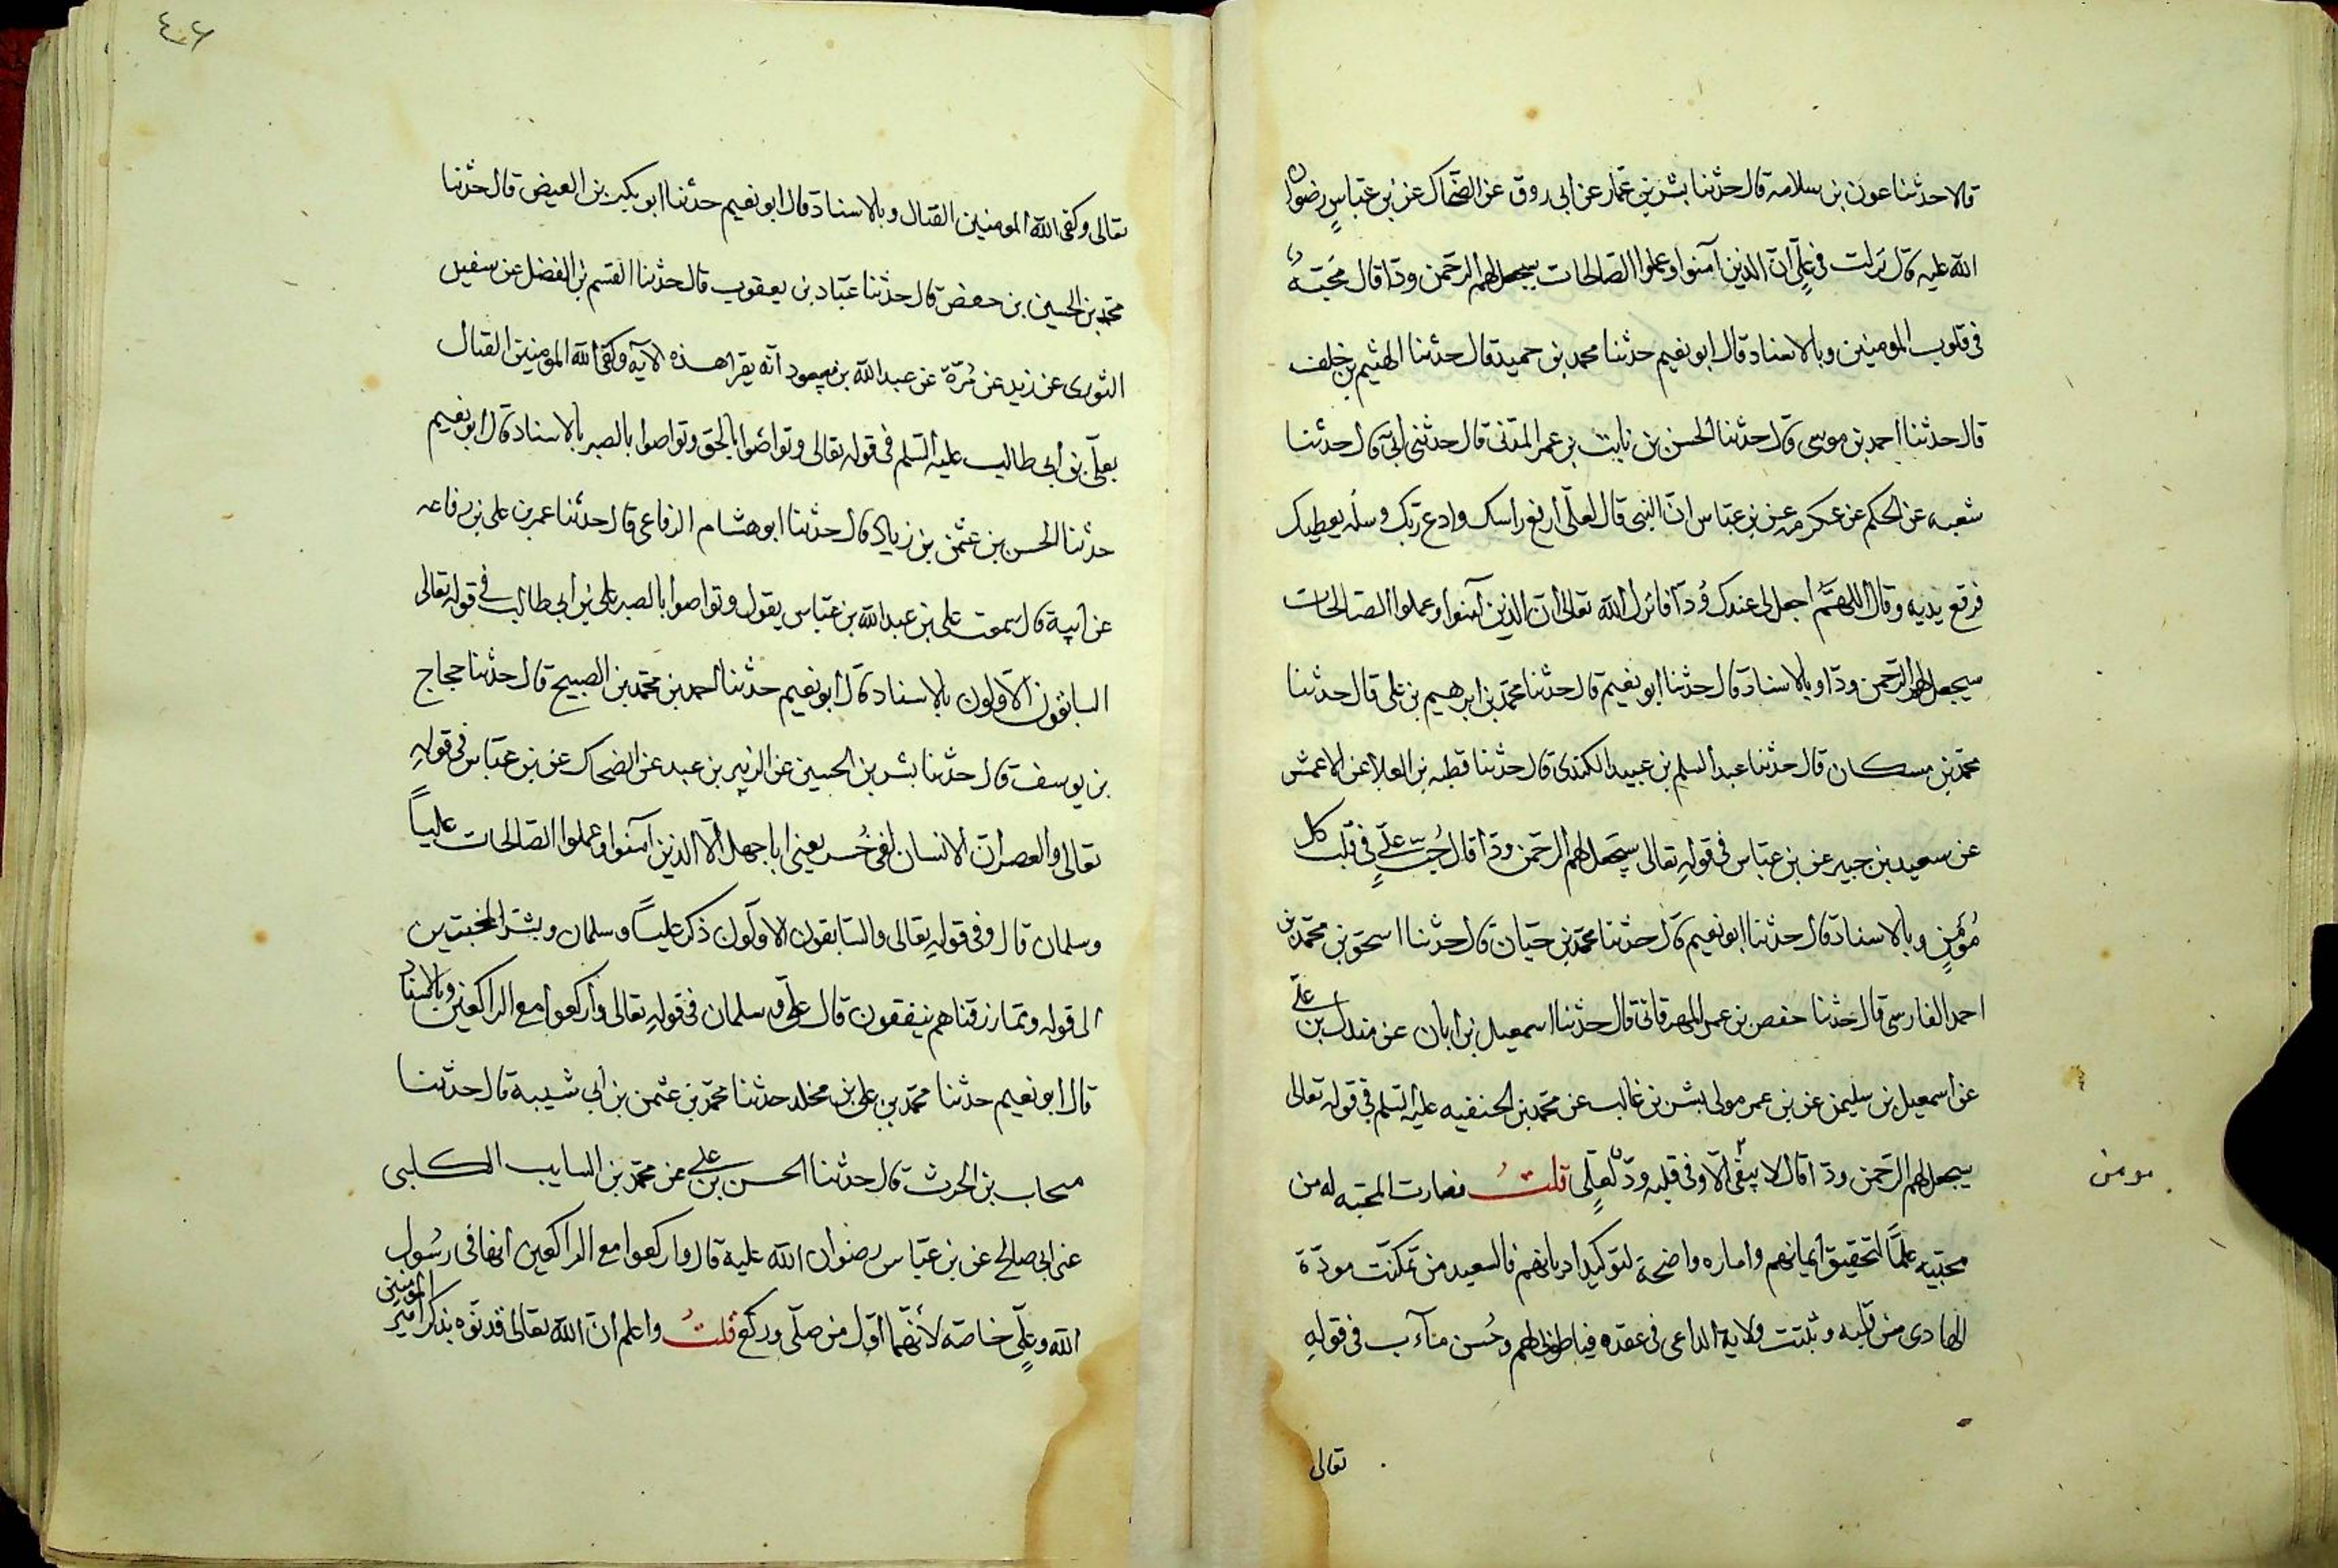 قالا حدثنا عون بن سلامه قال حدثنا بشر بن عمار عن ابى روق عن الضحّاك عن بن عبّاسٍ رضوان
الله عليه قال نزلت فى علىٍّ انّ الذين آمنوا وعملوا الصّالحات سيجعل لهم الرحمن ودّا قال محبّته
فى قلوب المومنين وبالاسناد قال ابو نعيم حدثنا محمد بن حميد قال حدثنا الهثيم بن خلف
قال حدثنا احمد بن موسى قال حدثنا الحسن بن ثابت بن عمر المدنى قال حدثنى ابى قال حدثنا
شعبه عن الحكم عن عكرمه عن بن عبّاس انّ النبى قال لعلّى ارفع راسك وادع ربّك وسله يعطيك
فرفع يديه وقال اللهمّ اجعل لى عندك ودّا فانزل الله تعالى ان الذين آمنوا وعملوا الصّالحات
سيجعل لهم الرّحمن ودّا وبالاسناد قال حدثنا ابو نعيم قال حدثنا محمّد بن ابرهيم بن على قال حدثنا
محمّد بن مسكان قال حدثنا عبد السلم بن عبيد الكندى قال حدثنا قطبه بن العلا عن الاعمش
عن سعيد بن جبير عن بن عبّاس فى قولهِ تعالى سيجعل لهم الرحمن ودّا قال حُبّ علىٍّ فى قلب كل
مُؤمنٍ وبالاسناد قال حدثنا ابو نعيم قال حدثنا محمّد بن حيّان قال حدثنا اسحق بن محمّد بن
احمد الفارسى قال حدثنا حفص بن عمر المهرقانى قال حدثنا اسمعيل بن ابان عن مندل بن على
عن اسمعيل بن سليمن عن بن عمر مولى بشر بن غالب عن محمّد بن الحنفيه عليه السّلم فى قوله تعالى
سيجعل لهم الرّحمن ودّا قال لا يبقى الّا وفى قلبه ودّ لعلىٍّ قلتُ فصارت المحبّه له من
مومن
محبّيه علمًا لتحقيق ايمانهم واماره واضحة لتوكيد اديانهم فالسعيد من تمكنّت مودّة
الهادى من قلبه وثبتت ولاية الداعى فى عقده فياطوبى لهم وحُسن مآب فى قوله
تعالى
٤٠٦
تعالى وكفى الله المومنين القتال وبالاسناد قال ابو نعيم حدثنا ابو بكر بن العيض قال حدثنا
محمّد بن الحسين بن حفص قال حدثنا عبّاد بن يعقوب قال حدثنا القسم بن الفضل عن سفين
الثورى عن زيد عن مُرّة عن عبد الله بن مسعود انّه يقرا هذه الآيه وكفى الله المومنين القتال
بعلىّ بن أبى طالب عليه السّلم فى قوله تعالى وتواصوا بالحق وتواصوا بالصبر بالاسناد قال ابو نعيم
حدثنا الحسن بن عثمن بن زياد قال حدثنا ابو هشام الرفاعى قال حدثنا عمر بن على بن رفاعه
عن ابيه قال سمعت على بن عبد الله بن عبّاس يقول وتواصوا بالصبر على بن ابى طالب فى قوله تعالى
السابقون الاوّلون بالاسناد قال ابو نعيم حدثنا احمد بن محمّد بن الصبيح قال حدثنا حجاج
بن يوسف قال حدثنا بشر بن الحسين عن الزبير بن عبد عن الضحاك عن بن عبّاس فى قولهِ
تعالى والعصر ان الانسان لفى خُسر يعنى ابا جهل الّا الذين آمنوا وعملوا الصّالحات عليّاً
وسلمان قال وفى قوله تعالى والسّابقون الاوّلون ذكر عليّاً وسلمان وبشّر المخبتين
الى قوله وممّا رزقناهم ينفقون قال علىّ وسلمان فى قولهِ تعالى واركعوا مع الراكعين وبالاسناد
قال ابو نعيم حدثنا محمّد بن على بن مخلد حدثنا محمّد بن عثمن بن ابى شيبة قال حدثنا
منجاب بن الحرث قال حدثنا الحسن بن على عن محمّد بن السايب الكلبى
عن ابى صالح عن بن عبّاس رضوان الله عليه قال واركعوا مع الراكعين انها فى رسُول
الله وعلىٍّ خاصّه لأنّهما اوّل من صلّى وركع قلتُ واعلم انّ الله تعالى قد نوّه بذكر امير المومنين